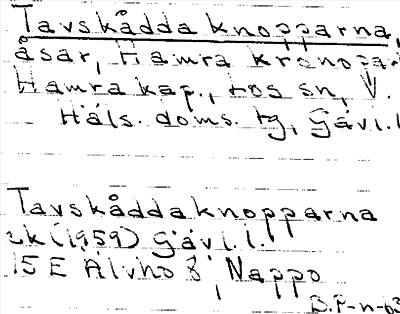 Tavskådda knopparna,
åsar, Hamra kronopar
Hamra kap., Los sn, V.
Häls. doms. tg, Gävl. l
Tavskåddaknopparna
ek (1959) Gävl. l.
15 E Älvho 8, Nappo